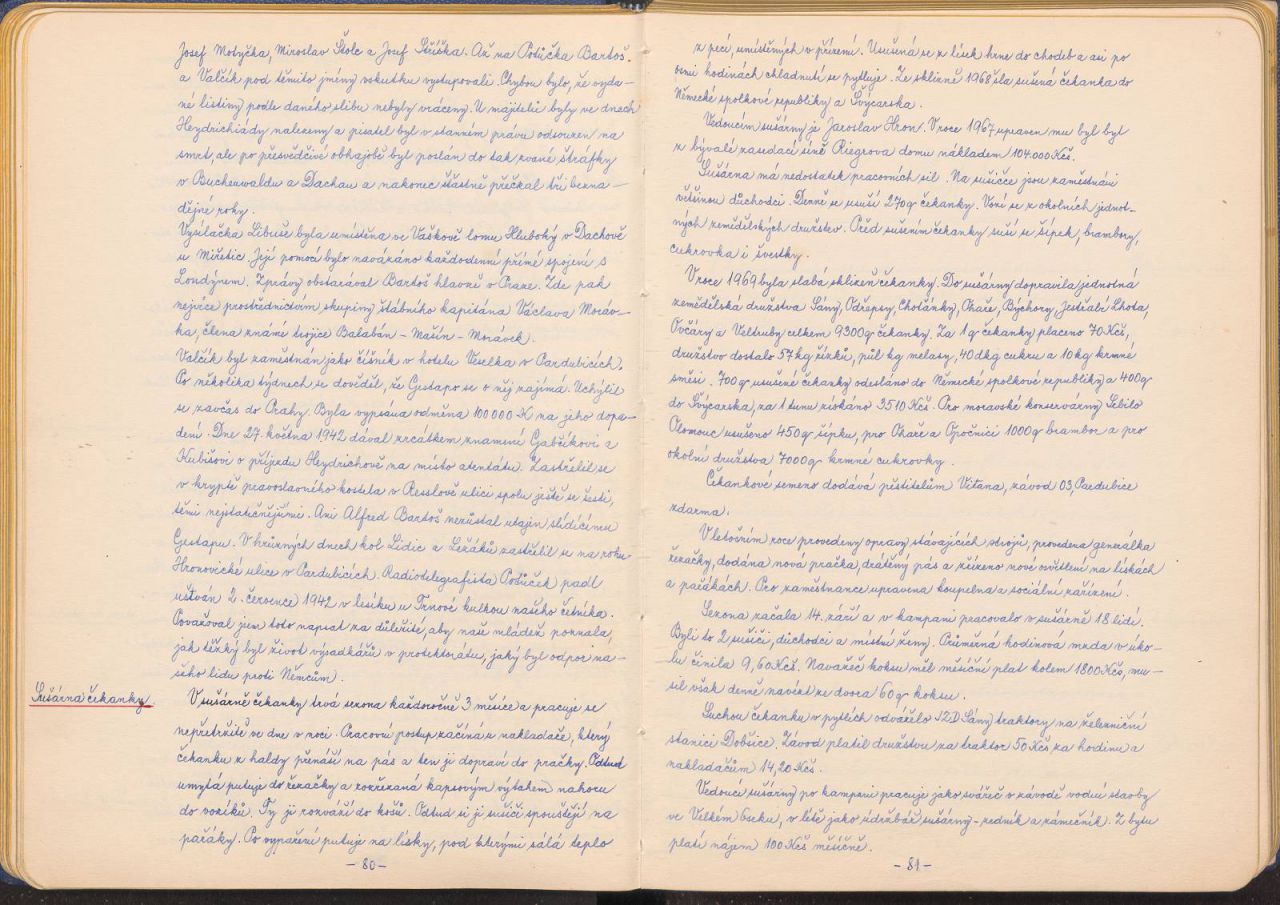 Josef Motyčka, Miroslav Šolc a Josef Stříška. Až na Potůčka Bartoš
a Valčík pod těmito jmény vskutku vystupovali. Chybou bylo, že vyda-
né listiny podle daného slibu nebyly vráceny. U majitelů byly ve dnech
Heydrichiády nalezeny a pisatel byl v stanném právu odsouzen na
smrt, ale po přesvědčivé obhajobě byl poslán do tak zvané štráfky
v Buchenwaldu a Dachau a nakonec šťastně přečkal tři bezna-
dějné roky.
Vysílačka Libuše byla umístěna ve Vaškově lomu Hluboký v Dachově
u Miřetic. Její pomocí bylo navázáno každodenní přímé spojení s
Londýnem. Zprávy obstarával Bartoš hlavně v Praze. Zde pak
nejvíce prostřednictvím skupiny štábního kapitána Václava Moráv-
ka, člena známé trojice Balabán - Mašín - Morávek.
Valčík byl zaměstnán jako číšník v hotelu Veselka v Pardubicích.
Po několika týdnech se dověděl, že Gestapo se o něj zajímá. Uchýlil
se zavčas do Prahy. Byla vypsána odměna 100 000 K na jeho dopa-
dení. Dne 27. května 1942 dával zrcátkem znamení Gabčíkovi a
Kubišovi o příjezdu Heydrichově na místo atentátu. Zastřelil se
v kryptě pravoslavného kostela v Resslově ulici spolu ještě se šesti,
těmi nejstatečnějšími. Ani Alfred Bartoš nezůstal utajen slídícímu
Gestapu. V hrůzných dnech kol Lidic a Ležáků zastřelil se na rohu
Hronovické ulice v Pardubicích. Radiotelegrafista Potůček padl
uštván 2. července 1942 v lesíku u Trnové kulkou našeho četníka.
Považoval jsem toto napsat za důležité, aby naše mládež poznala,
jak těžký byl život výsadkářů v protektorátu, jaký byl odpor na-
šeho lidu proti Němcům.
Sušárna čekanky
V sušárně čekanky trvá sezona každoročně 3 měsíce a pracuje se
nepřetržitě ve dne v noci. Pracovní postup začíná u nakladače, který
čekanku z haldy přenáší na pás a ten ji dopraví do pračky. Odtud
umytá putuje do řezačky a rozřezaná kapsovým výtahem nahoru
do vozíků. Ty ji rozváží do košů. Odtud si ji sušiči spouštějí na
pařáky. Po vypaření putuje na lísky, pod kterými sálá teplo
- 80 -
z pecí, umístěných v přízemí. Usušená se z lísek hrne do chodeb a asi po
osmi hodinách chladnutí se pytluje. Ze sklizně 1968 šla sušená čekanka do
Německé spolkové republiky a Švýcarska.
Vedoucím sušárny je Jaroslav Hron. V roce 1967 upraven mu byl byt
z bývalé zasedací síně Riegrova domu nákladem 104.000 Kčs.
Sušárna má nedostatek pracovních sil. Na sušičce jsou zaměstnáni
většinou důchodci. Denně se usuší 270 q čekanky. Vozí se z okolních jednot-
ných zemědělských družstev. Před sušením čekanky suší se šípek, brambory,
cukrovka i švestky.
V roce 1969 byla slabá sklizeň čekanky. Do sušárny dopravila jednotná
zemědělská družstva Sány, Odřepsy, Choťánky, Okaře, Býchory, Jestřabí Lhota,
Ovčáry a Veltruby celkem 9300 q čekanky. Za 1 q čekanky placeno 70 Kčs,
družstvo dostalo 57 kg řízků, půl kg melasy, 40 dkg cukru a 10 kg krmné
směsi. 700 q usušené čekanky odesláno do Německé spolkové republiky a 400 q
do Švýcarska, za 1 tunu získáno 3510 Kčs. Pro moravské konservárny
Olomouc usušeno 450 q šípku, pro Okaře a Opočnici 1000 q brambor a pro
okolní družstva 7000 q krmné cukrovky.
Čekankové semeno dodává pěstitelům Vitana, závod 03, Pardubice
zdarma.
V letošním roce provedeny opravy stávajících strojů, provedena generálka
řezačky, dodána nová pračka, drátěný pás a zřízeno nové osvětlení na lískách
a pařákách. Pro zaměstnance upravena koupelna a sociální zařízení.
Sezona začala 14. září a v kampani pracovalo v sušárně 18 lidí.
Byli to 2 sušiči, důchodci a místní ženy. Průměrná hodinová mzda v úko-
lu činila 9,60 Kčs. Navařeč koksu měl měsíční plat kolem 1800 Kčs, mu-
sil však denně navézt ze dvora 60 q koksu.
Suchou čekanku v pytlích odváželo JZD Sány traktory na železniční
stanici Dobšice. Závod platil družstvu za traktor 50 Kčs za hodinu a
nakladačům 14,20 Kčs.
Vedoucí sušárny po kampani pracuje jako svářeč v závodě vodní stavby
ve Velkém Oseku, v létě jako údržbář sušárny - zedník a zámečník. Z bytu
platí nájem 100 Kčs měsíčně.
- 81 -